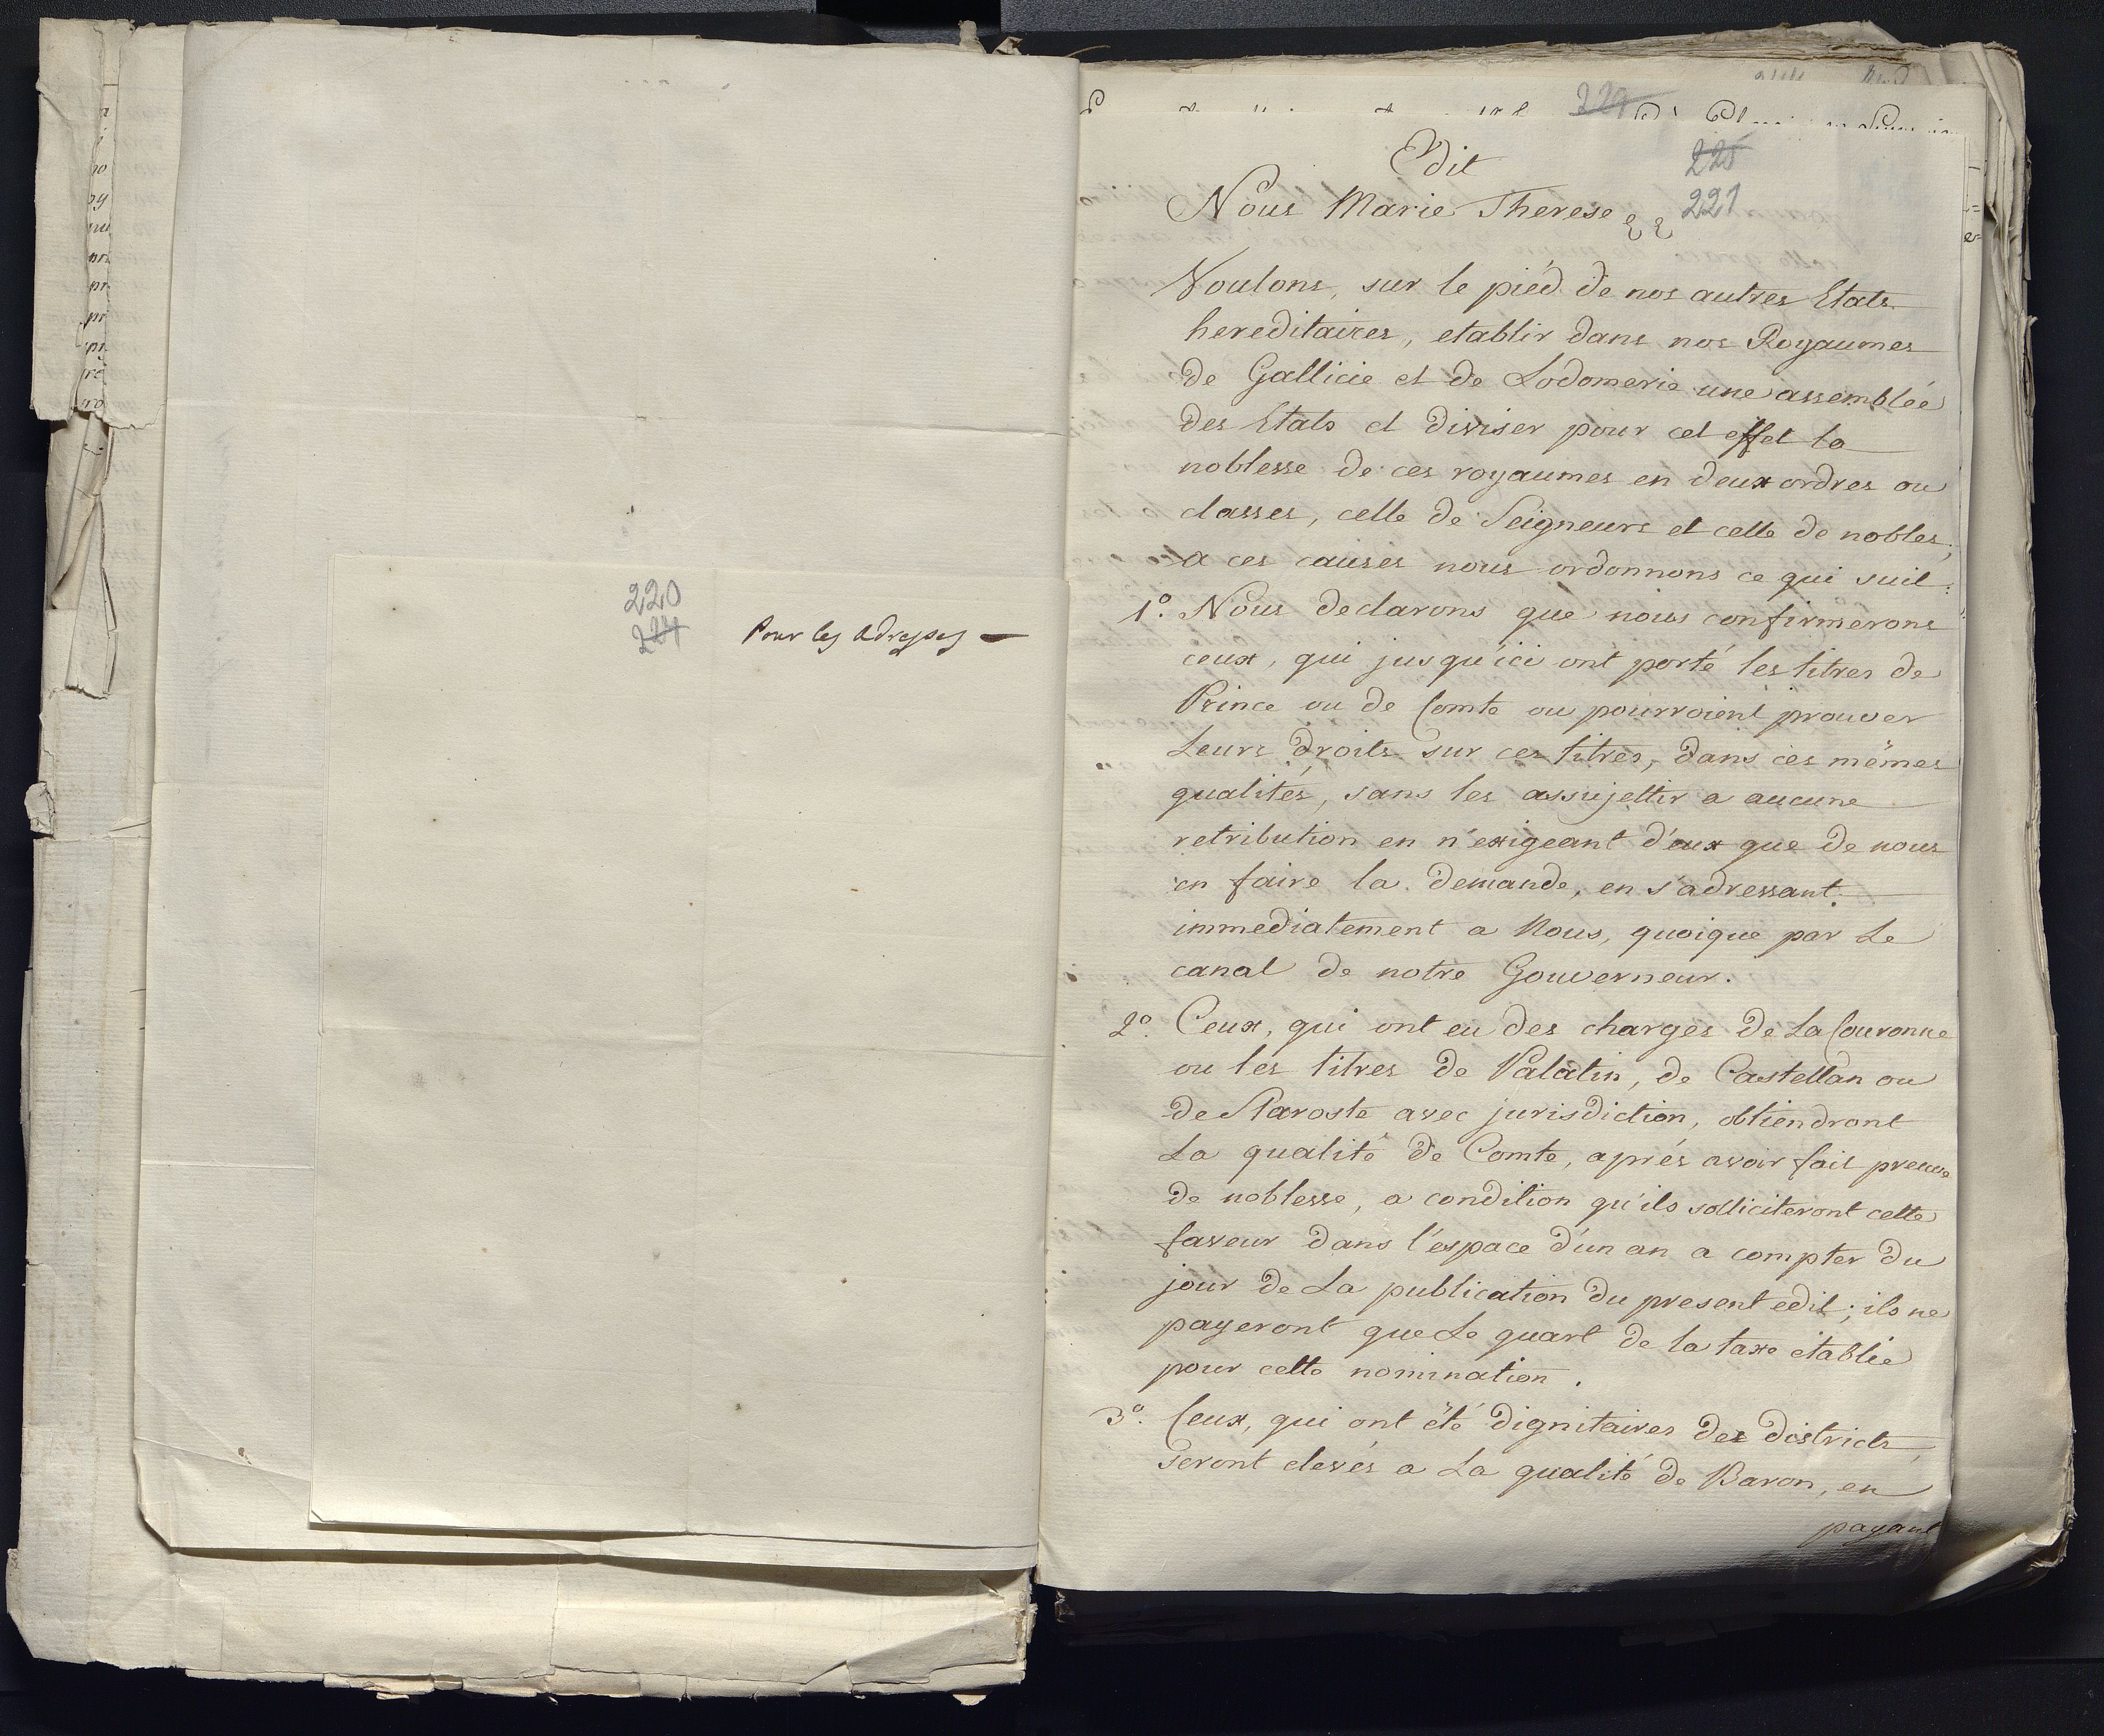 220
224
Pour les adresses —
229
225
Edit
221
Nous Marie Therese
Voulons, sur le piéd de nos autres Etats
hereditaires, etablir dans nos Royaumes
de Gallicie et de Lodomerie une assemblée
des Etats et diviser pour cet effet la
noblesse de ces royaumes en deux ordres ou
classes, celle de Seigneurs et celle de nobles;
a ces causes nous ordonnons ce qui suit:
1º. Nous declarons que nous confirmerons
ceux, qui jusqu'ici ont porté les titres de
Prince ou de Comte ou pourroient prouver
Leurs droits sur ces titres, dans ces mêmes
qualités, sans les assujettir a aucune
retribution en n'exigeant d'eux que de nous
en faire la demande, en s'adressant
immediatement a Nous, quoique par Le
canal de notre Gouverneur.
2º. Ceux, qui ont eu des charges de La Couronne
ou les titres de Palatin, de Castellan ou
de Staroste avec jurisdiction, obtiendront
La qualité de Comte, aprés avoir fait preuve
de noblesse, a condition qu'ils solliciteront cette
faveur dans l'espace d'un an a compter du
jour de La publication du present edit; ils ne
payeront que Le quart de la taxe etablie
pour cette nomination.
3º. Ceux, qui ont été dignitaires des districts
seront elevés a La qualité de Baron, en
payant